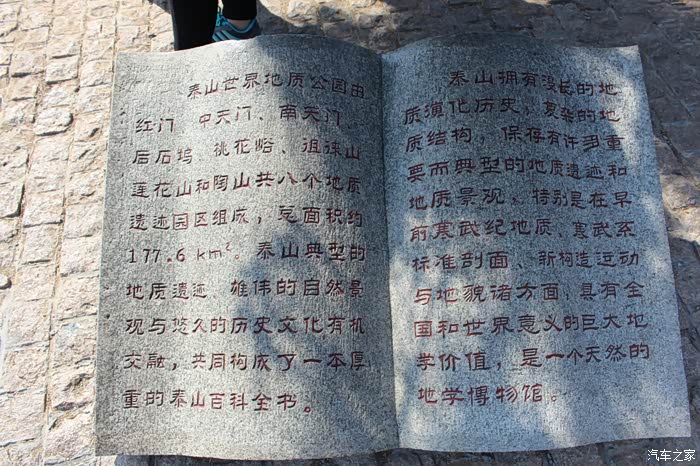 泰山世界地质公园由
红门、中天门、南天门
后石坞、桃花峪、徂徕山
莲花山和陶山共八个地质
遗迹园区组成，总面积约
177.6 km²。泰山典型的
地质遗迹、雄伟的自然景
观与悠久的历史文化有机
交融，共同构成了一本厚
重的泰山百科全书。
泰山拥有漫长的地
质演化历史，复杂的地
质结构，保存有许多重
要而典型的地质遗迹和
地质景观。特别是在早
前寒武纪地质、寒武系
标准剖面、新构造运动
与地貌诸方面，具有全
国和世界意义的巨大地
学价值，是一个天然的
地学博物馆。
汽车之家